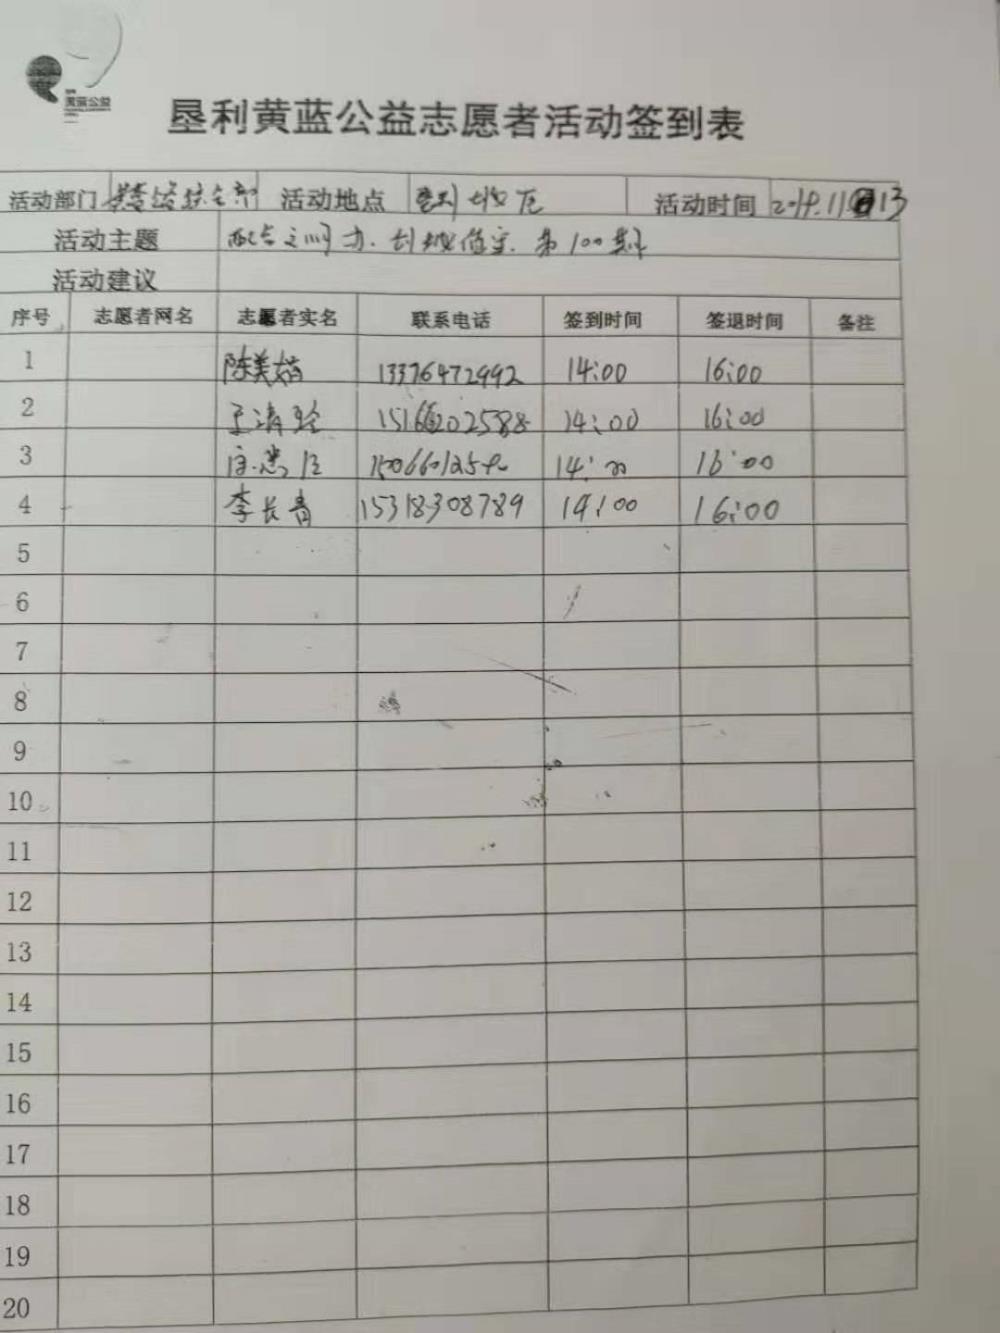 黄蓝公益
垦利黄蓝公益志愿者活动签到表
活动部门 活动地点 垦利 活动时间 2019.11 13
活动主题 第100期
活动建议
序号 志愿者网名 志愿者实名 联系电话 签到时间 签退时间 备注
1 陈美 13376472992 14:00 16:00
2 于清 15166202588 14:00 16:00
3 14:00 16:00
4 李长青 15318308789 14:00 16:00
5
6
7
8
9
10
11
12
13
14
15
16
17
18
19
20